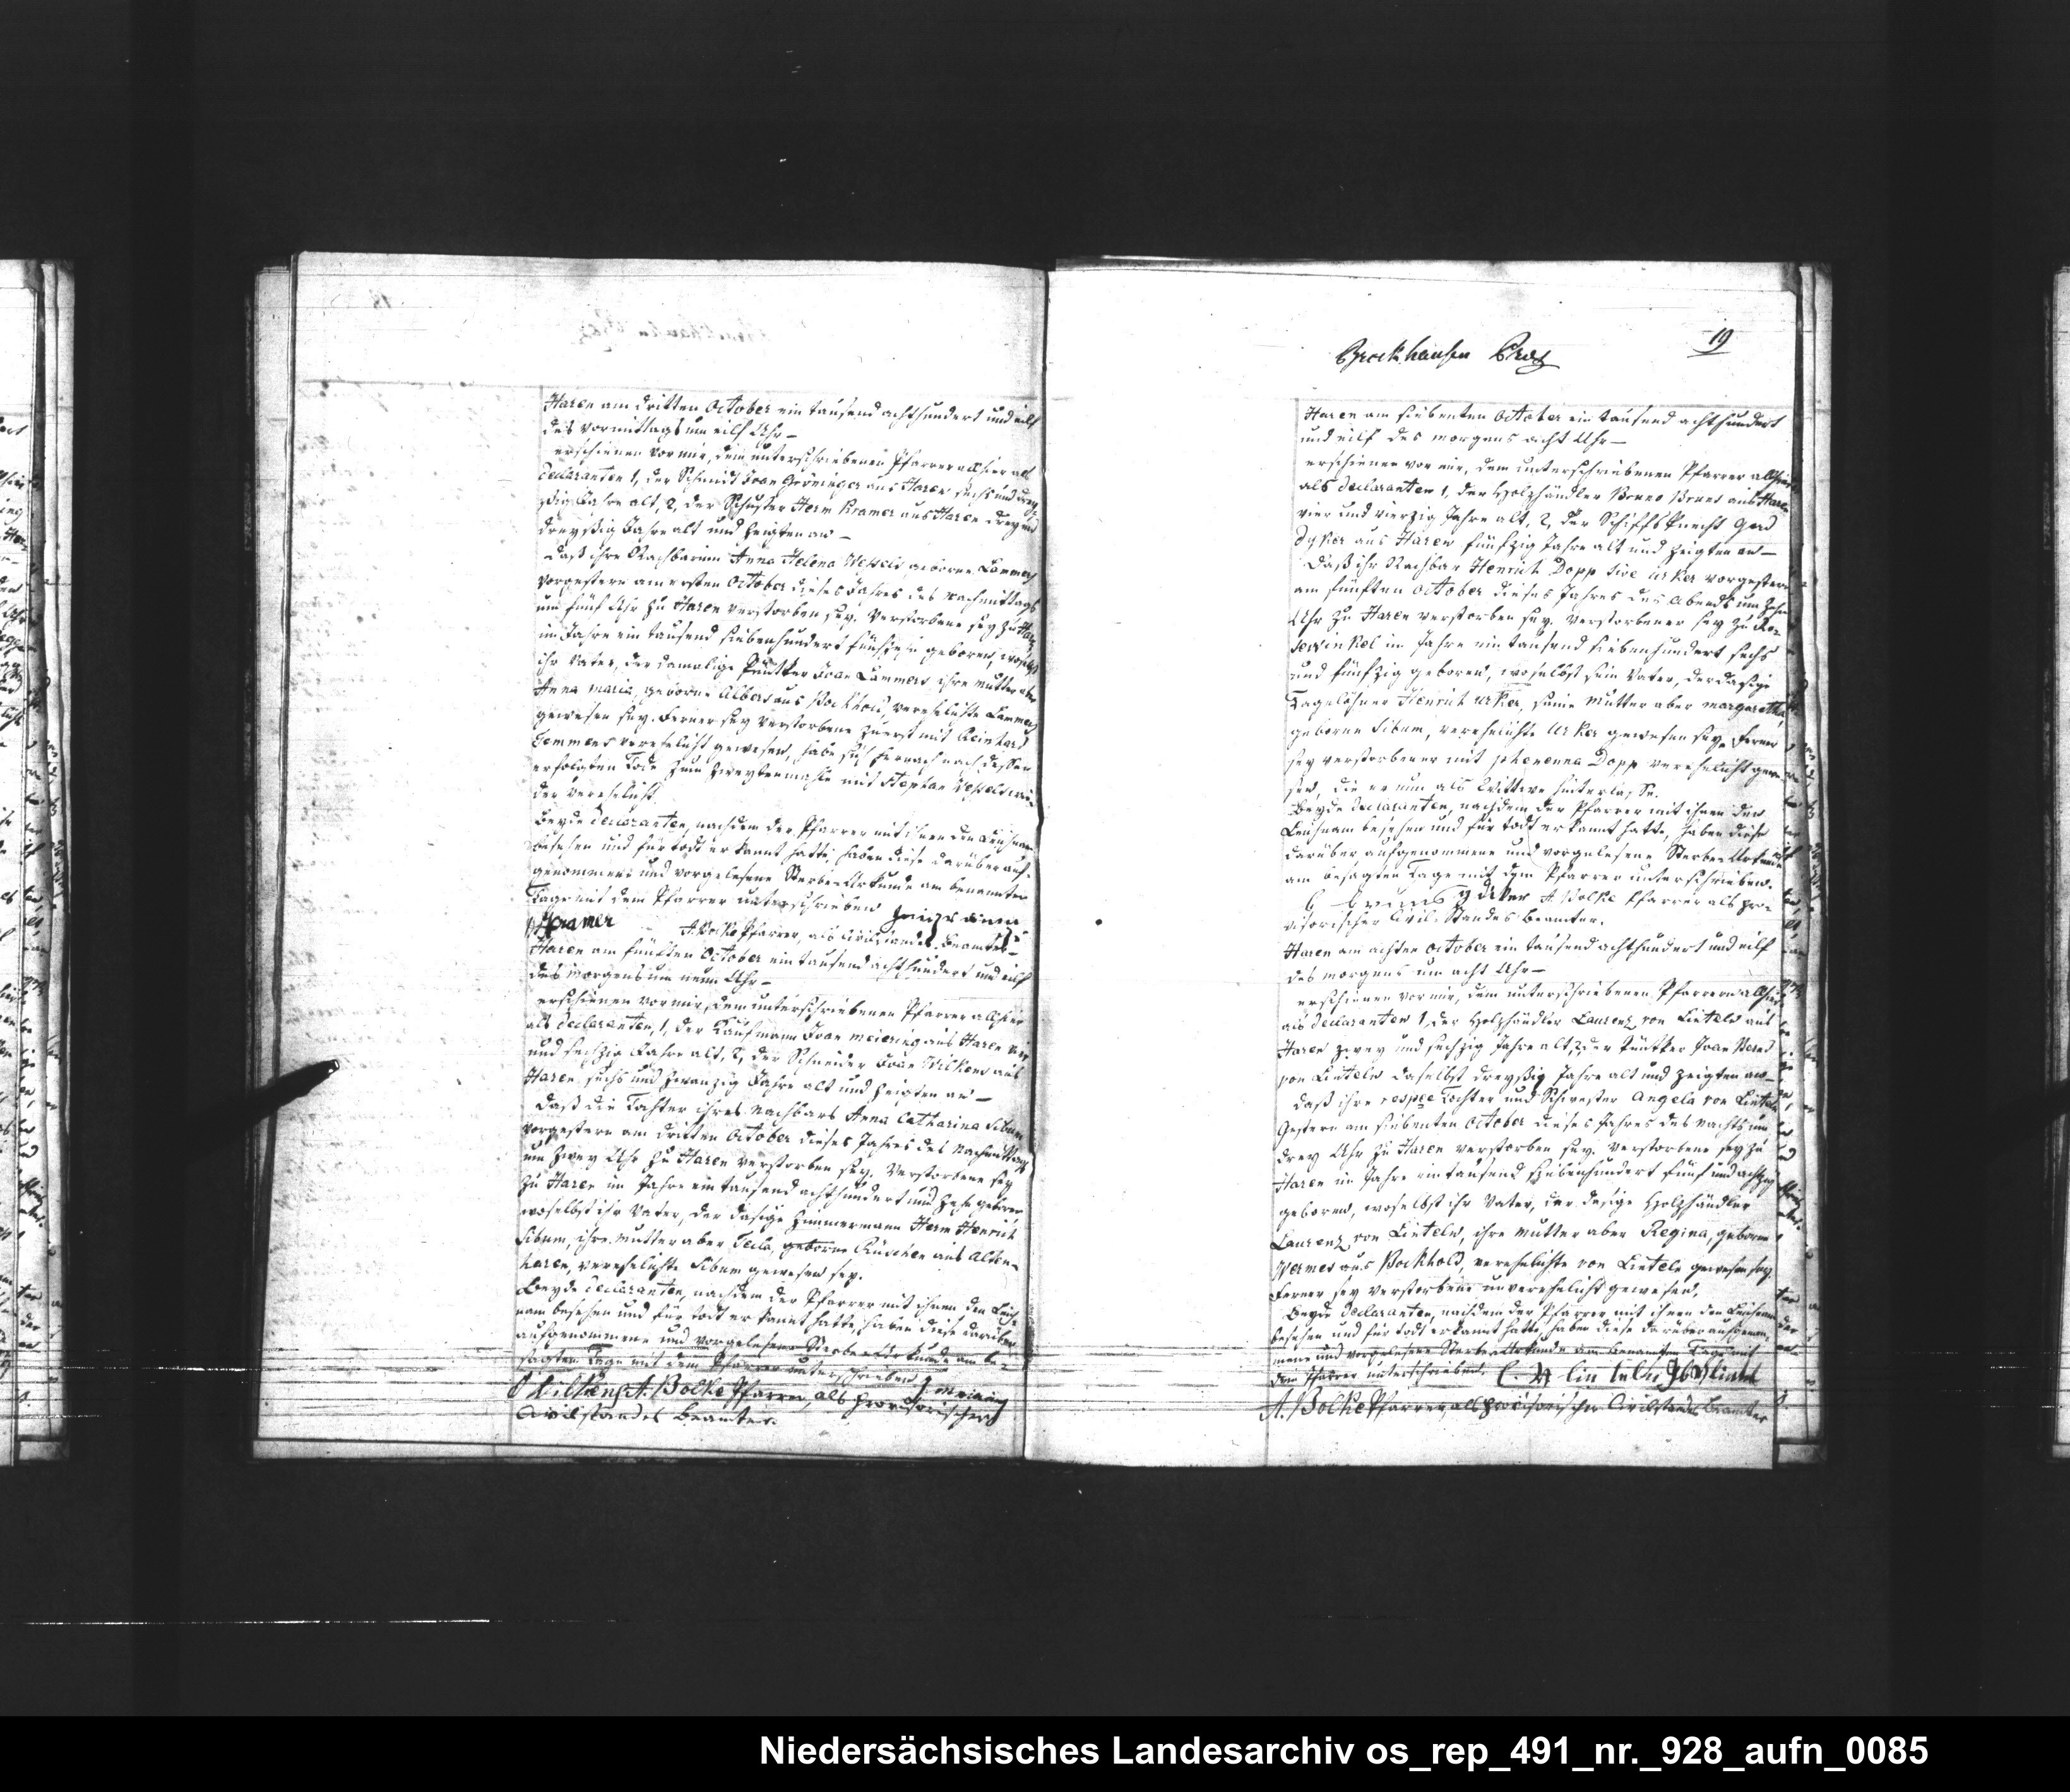 Haren am dritten October ein tausend achthundert und eilf
des Vormittags um eilf Uhr –
erschienen vor mir, dem unterschriebenen Pfarrer allhier als
Declaranten 1, der Schmidt Joan Gerninger aus Haren sechs und drey-
ßig Jahre alt, 2, der Schuster Herm Kramer aus Haren drey und
dreyßig Jahre alt und zeigten an –
daß ihre Nachbarinn Anna Helena Wessels, geborne Lammers
vorgestern am ersten October dieses Jahres des Nachmittags
um fünf Uhr zu Haren verstorben sey. Verstorbene sey zu Haren
im Jahre ein tausend siebenhundert geboren, woselbst
ihr Vater, der damalige Püntker Joan Lammers, ihre Mutter aber
Anna Maria, geborne Albers aus Bockhold, verehelichte Lammers
gewesen sey. Ferner sey Verstorbene zuerst mit Reinhard
Temmens verehelicht gewesen, habe sich hernach nach dessen
erfolgten Tode zum zweytenmahle mit Stephan Wessels wie-
der verehelicht.
Beyde Declaranten, nachdem der Pfarrer mit ihnen den Leichnam
besehen und für todt erkannt hatte, haben diese darüber auf-
genommene und vorgelesene Sterbe-Urkunde am benannten
Tage mit dem Pfarrer unterschrieben
H Kramer A. Bolke Pfarrer, als Civilstandes Beamter
Haren am fünften October ein tausend achthundert und eilf
des Morgens um neun Uhr –
erschienen vor mir, dem unterschriebenen Pfarrer allhier
als Declaranten, 1, der Kaufmann Joan Meiering aus Haren vier
und sechzig Jahre alt, 2, der Schneider Joan Wilkens aus
Haren, sechs und zwanzig Jahre alt und zeigten an –
daß die Tochter ihres Nachbars Anna Catharina Sibum
vorgestern am dritten October dieses Jahres des Nachmittags
um zwey Uhr zu Haren verstorben sey. Verstorbene sey
zu Haren im Jahre ein tausend achthundert und zehn geboren
woselbst ihr Vater, der dasige Zimmermann Herm Henrich
Sibum, ihre Mutter aber Tecla, geborne Rüschen aus Alten-
haren, verehelichte Sibum gewesen sey.
Beyde Declaranten, nachdem der Pfarrer mit ihnen den Leich-
nam besehen und für todt erkannt hatte, haben diese darüber
aufgenommene und vorgelesene Sterbe-Urkunde am be-
sagten Tage mit dem Pfarrer unterschrieben J meiering
J Wilkens A. Bolke Pfarrer, als provisorischer
Civilstandes Beamter.
19
Brockhausen
Haren am siebenten October ein tausend achthundert
und eilf des Morgens acht Uhr –
erschienen vor mir, dem unterschriebenen Pfarrer allhier
als Declaranten 1, der Holzhändler Bruno Bruns aus Haren
vier und vierzig Jahre alt, 2, der Schiffsknecht Gerd
Dyker aus Haren fünfzig Jahre alt und zeigten an –
Daß ihr Nachbar Henrich Dopp sive Urker vorgestern
am fünften October dieses Jahres des Abends um zehn
Uhr zu Haren verstorben sey. Verstorbener sey zu
im Jahre ein tausend siebenhundert sechs
und fünfzig geboren, woselbst sein Vater, der dasige
Tagelöhner Henrich Urker, seine Mutter aber Margaretha,
geborne Sibum, verehelichte Urker gewesen sey. Ferner
sey Verstorbener mit Dopp verehelicht gewe-
sen, die er nun als Wittwe hinterlasse.
Beyde Declaranten, nachdem der Pfarrer mit ihnen den
Leichnam besehen und für todt erkannt hatte, haben diese
darüber aufgenommene und vorgelesene Sterbe-Urkunde
am besagten Tage mit dem Pfarrer unterschrieben.
b bruns g diker A Bolke Pfarrer als pro-
visorischer Civil-Standes Beamter.
Haren am achten October ein tausend achthundert und eilf
des Morgens um acht Uhr –
erschienen vor mir, dem unterschriebenen Pfarrer allhier
als Declaranten 1, der Holzhändler Laurenz von Linteln aus
Haren zwey und sechzig Jahre alt, 2, der Püntker Joan Bernd
von Linteln daselbst dreyßig Jahre alt und zeigten an –
daß ihre respee Tochter und Schwester Angela von Linteln
gestern am siebenten October dieses Jahres des Nachts um
drey Uhr zu Haren verstorben sey. Verstorbene sey zu
Haren im Jahre ein tausend siebenhundert fünf und achtzig
geboren, woselbst ihr Vater, der dasige Holzhändler
Laurenz von Linteln, ihre Mutter aber Regina, geborne
Wermes aus Bockhold, verehelichte von Lintels gewesen sey.
Ferner sey Verstorbene unverehelicht gewesen.
Beyde Declaranten, nachdem der Pfarrer mit ihnen den Leichnam
besehen und für todt erkannt hatte, haben diese darüber aufgenom-
mene und vorgelesene Sterbe-Urkunde am benannten Tage mit
dem Pfarrer unterschrieben.
A. Bolke Pfarrer, als provisorischer Civilstandes Beamter
Niedersächsisches Landesarchiv os_rep_491_nr._928_aufn_0085